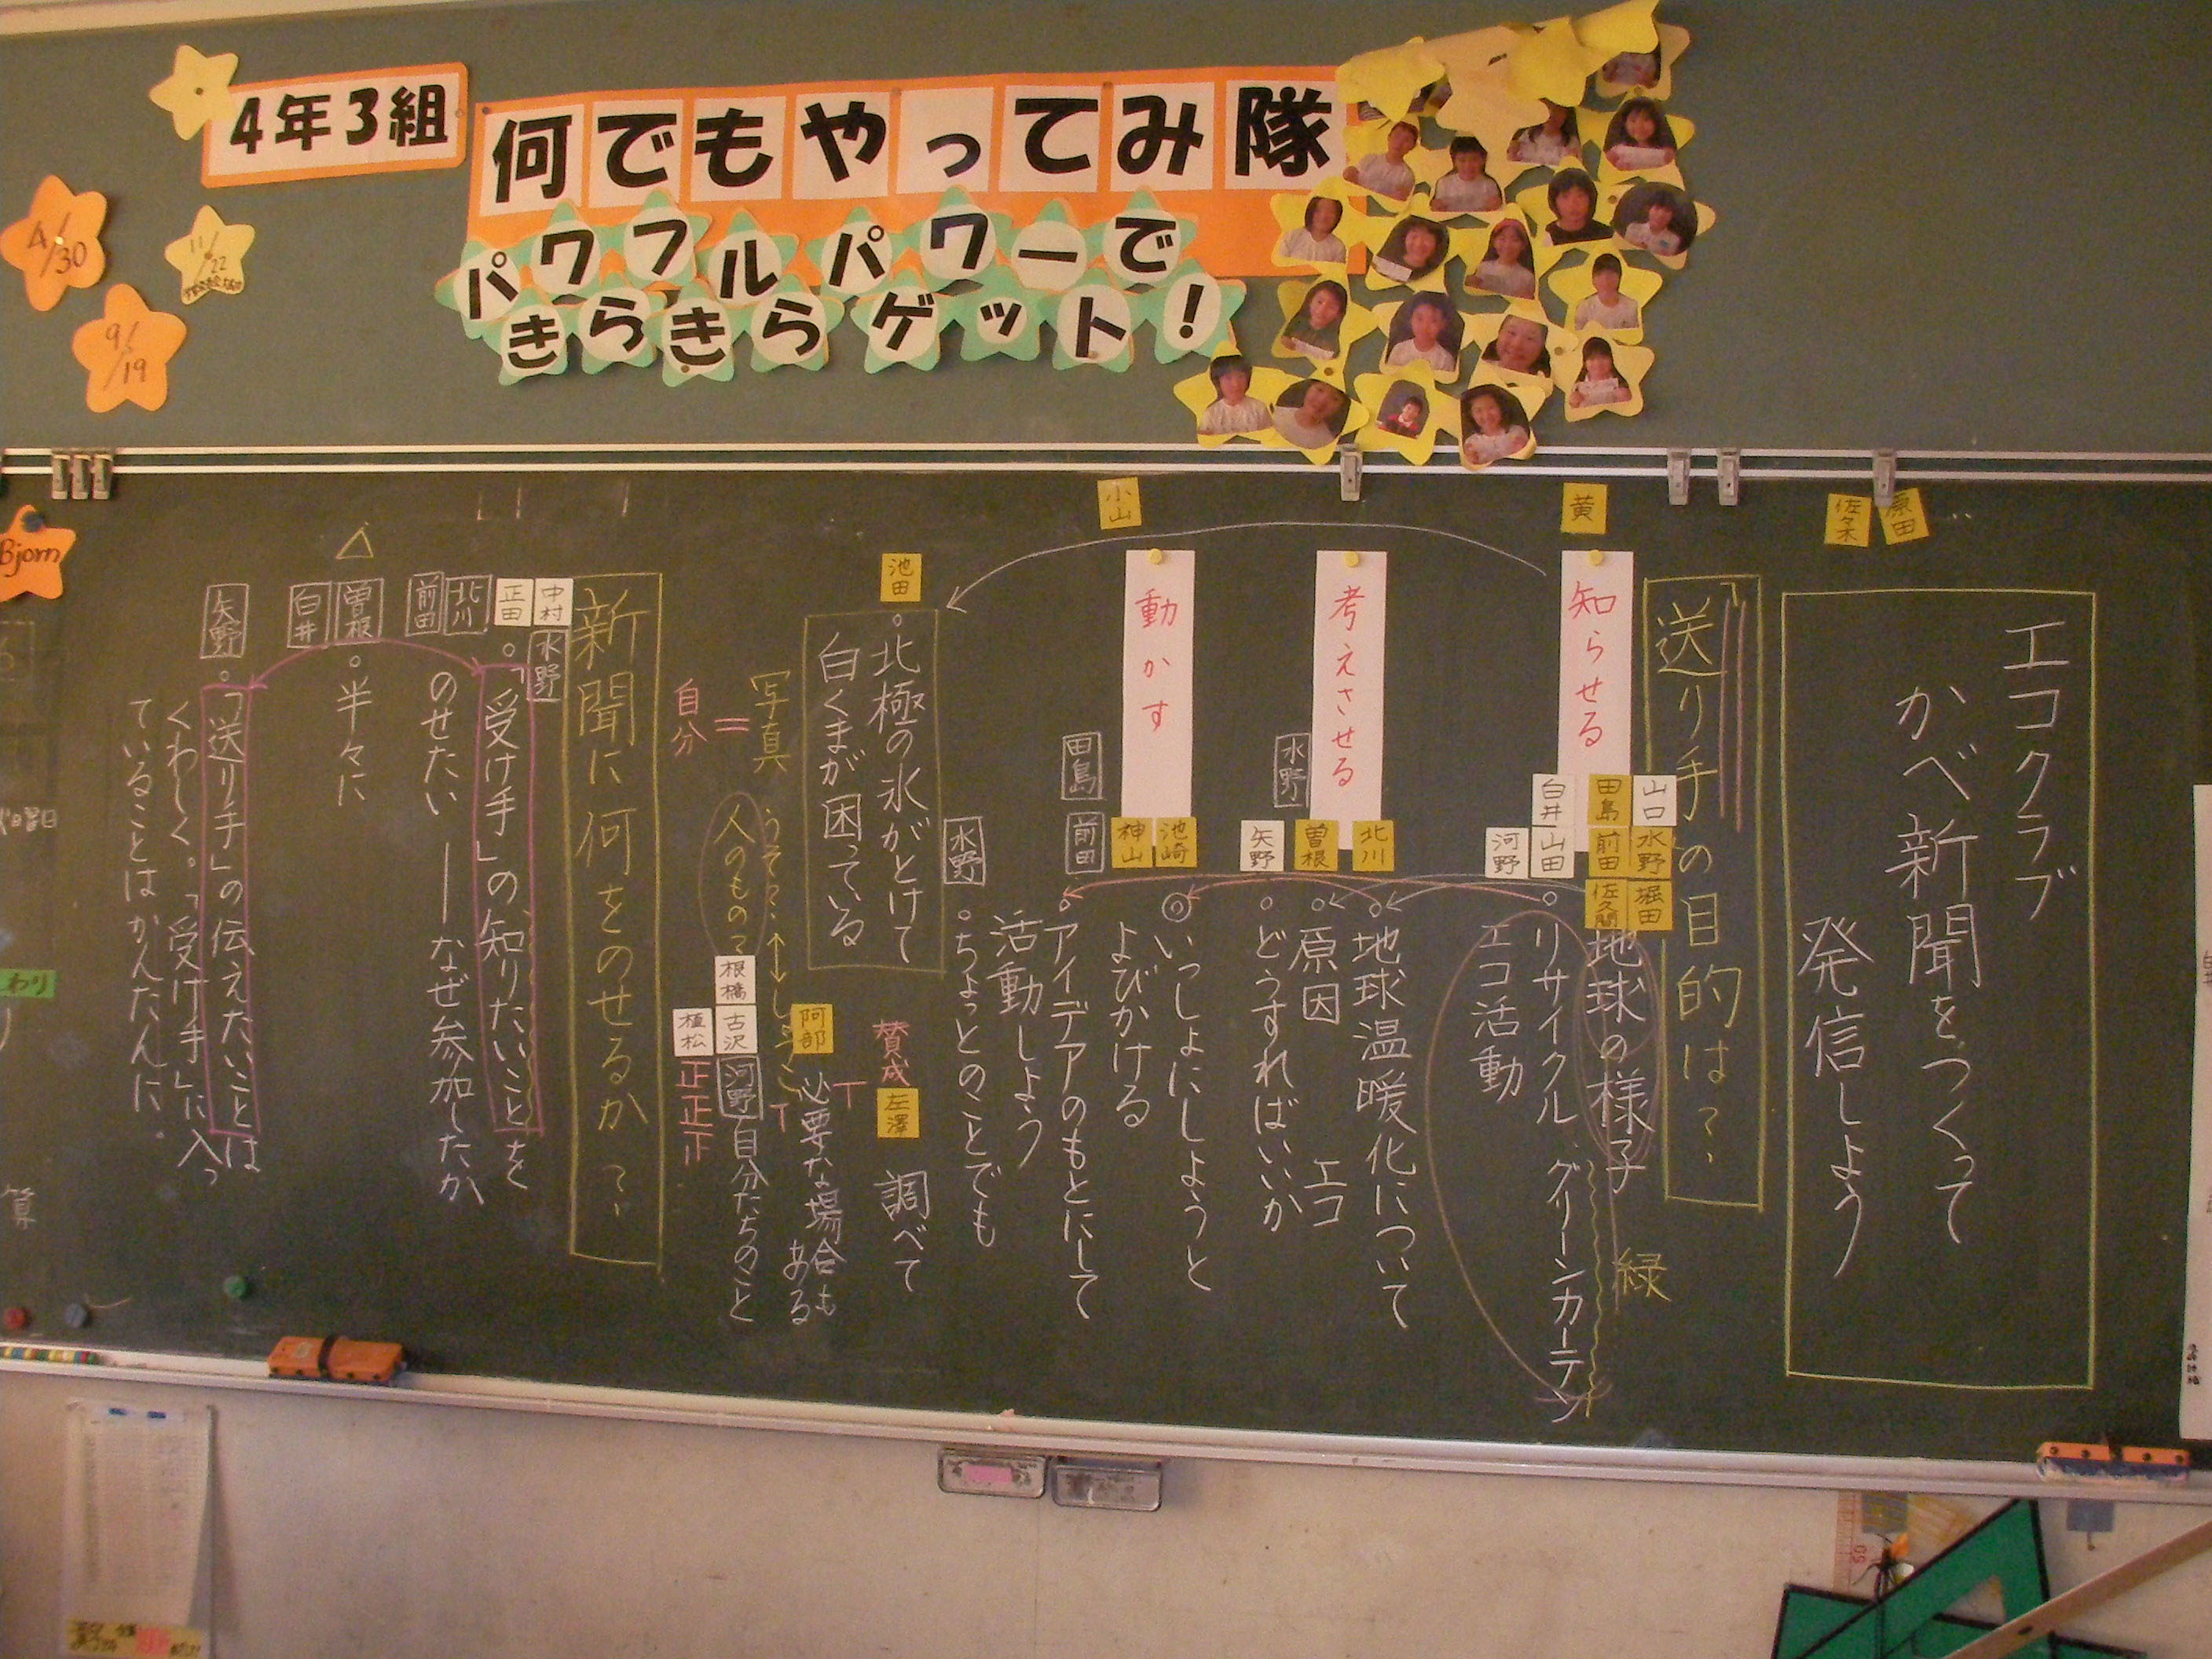 4年3組
何でもやってみ隊
パワフルパワーで
きらきらゲット!
4/30
11/22
9/19
Bjorn
原田
エコクラブ
かべ新聞をつくって
発信しよう
送り手の目的は?
黄
知らせる
山口
水野
堀田
田島
前田
佐久間
白井
山田
河野
地球の様子
緑
リサイクル、グリーンカーテン
エコ活動
考えさせる
水野
北川
曽根
矢野
地球温暖化について
原因 エコ
どうすればいいか
小山
動かす
池崎
神山
田島
前田
いっしょにしようと
よびかける
アイデアのもとにして
活動しよう
水野
ちょっとのことでも
池田
北極の氷がとけて
白くまが困っている
賛成
左澤
調べて
写真
＝
自分
阿部
必要な場合も
ある
人のもの
根橋
古沢
植松
河野
自分たちのこと
正正下
新聞に何をのせるか?
中村
水野
正田
北川
前田
「受け手」の知りたいことを
のせたい ─なぜ参加したか
曽根
白井
半々に
矢野
「送り手」の伝えたいことは
くわしく。「受け手」に入っ
ていることはかんたんに。
わり
算